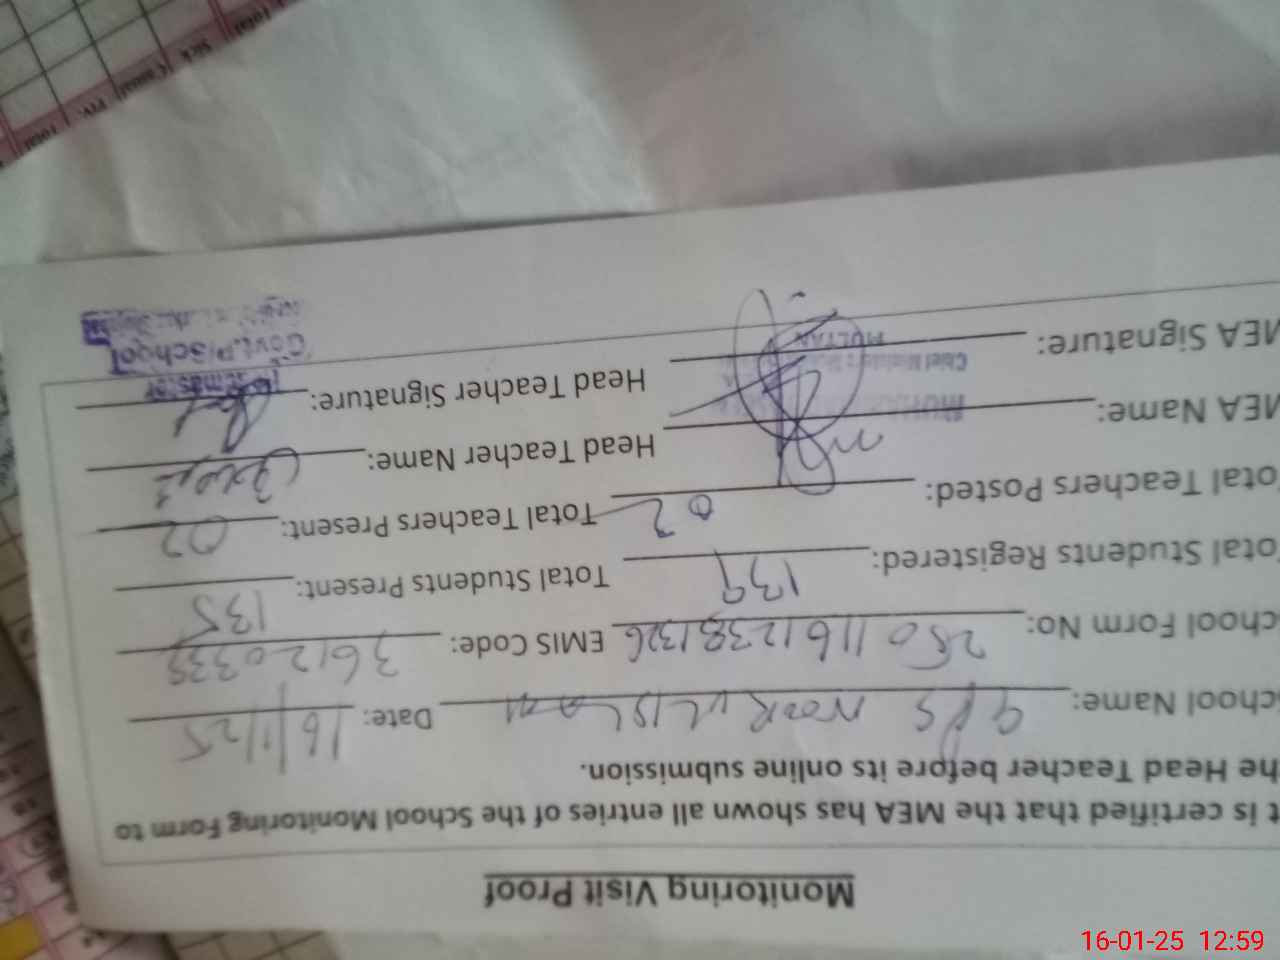 Monitoring Visit Proof
t is certified that the MEA has shown all entries of the School Monitoring Form to
he Head Teacher before its online submission.
chool Name: GPS Noor ul Islam Date: 16/1/25
chool Form No: 25011612381326 EMIS Code: 36120339
otal Students Registered: 139 Total Students Present: 135
otal Teachers Posted: 02 Total Teachers Present: 02
MEA Name: Head Teacher Name:
MEA Signature: Head Teacher Signature:
MULTAN
Headmaster
Govt. P/School
Total
SCK
Casual
Prv.
Total
16-01-25 12:59